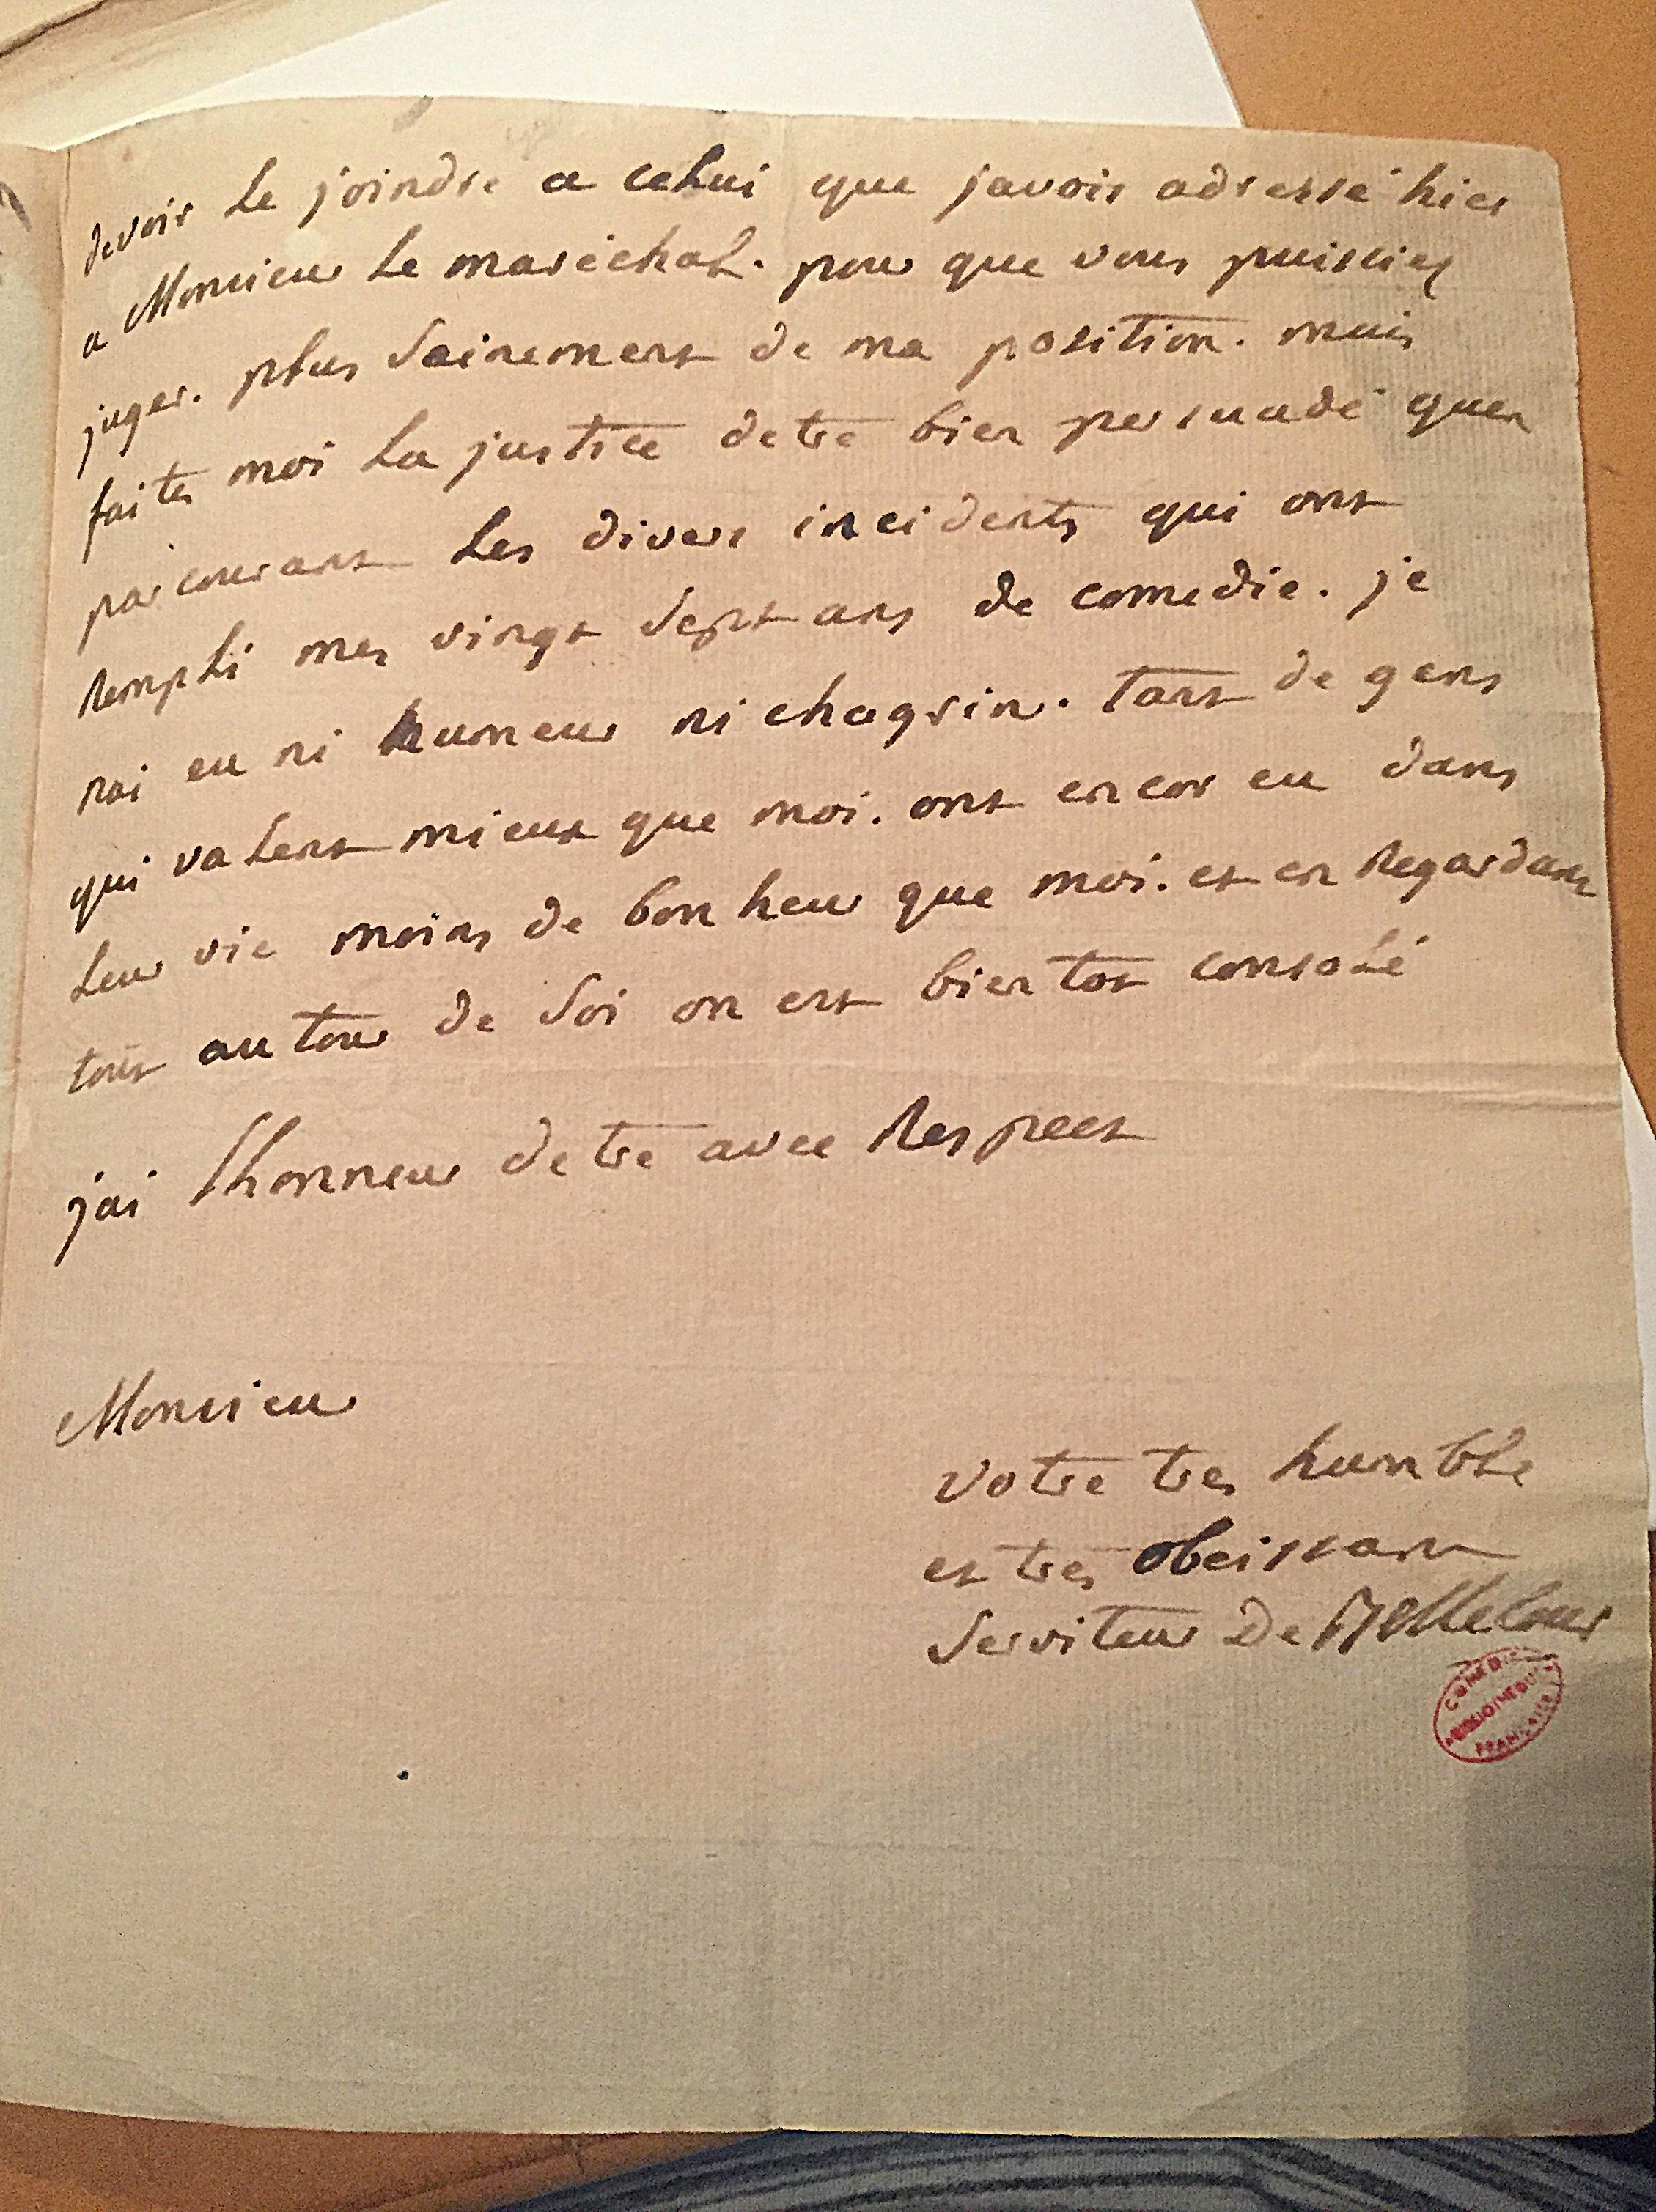 devoir le joindre a celui que javois adressé hier
a Monsieur le maréchal. pour que vous puissiez
juger. plus sainement de ma position. mais
faites moi la justice detre bien persuadé quen
parcourant les divers incidents qui ont
rempli mes vingt sept ans de comedie. je
nai eu ni humeur ni chagrin. tant de gens
qui valent mieux que moi. ont encor eu dans
leur vie moins de bonheur que moi. et en regardant
tout autour de soi on est bientot consolé
jai lhonneur detre avec respect
Monsieur
votre tres humble
et tres obeissant
serviteur De Bellecour
COMÉDIE
BIBLIOTHEQUE
FRANÇAISE